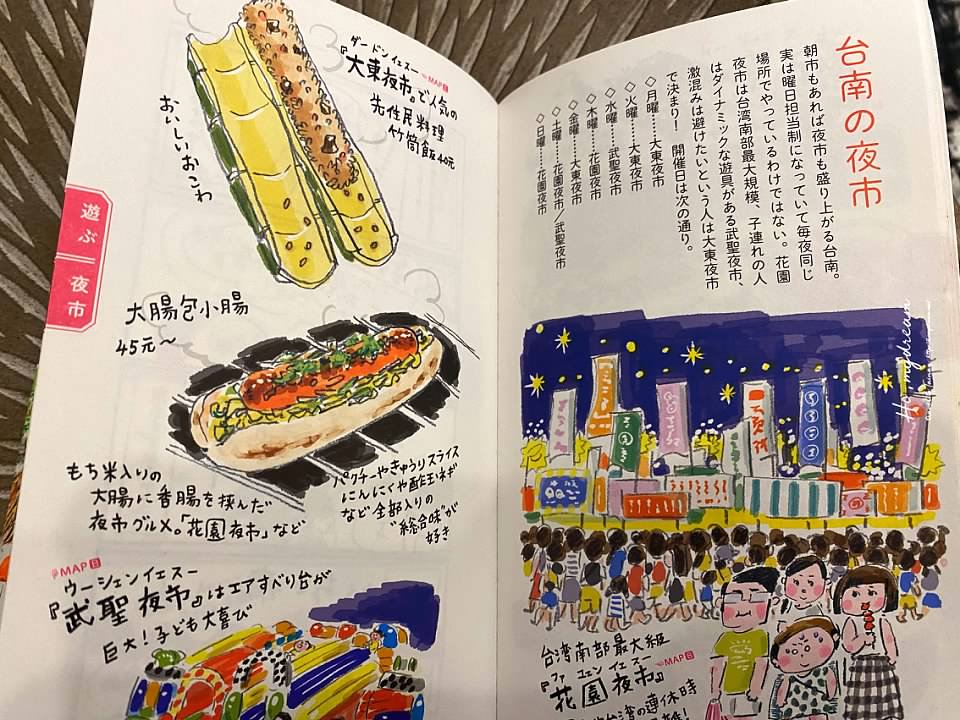 台南の夜市
朝市もあれば夜市も盛り上がる台南。
実は曜日担当制になっていて毎夜同じ
場所でやっているわけではない。花園
夜市は台湾南部最大規模、子連れの人
はダイナミックな遊具がある武聖夜市、
激混みは避けたいという人は大東夜市
で決まり! 開催日は次の通り。
◇月曜……大東夜市
◇火曜……大東夜市
◇水曜……武聖夜市
◇木曜……花園夜市
◇金曜……大東夜市
◇土曜……花園夜市/武聖夜市
◇日曜……花園夜市
台湾南部最大級
ファユェンイエスー
『花園夜市』
MAP
ダードンイェスー
『大東夜市』で人気の
MAP
先住民料理
竹筒飯40元
おいしいおこわ
遊ぶ
夜市
大腸包小腸
45元~
もち米入りの
大腸に香腸を挟んだ
夜市グルメ。「花園夜市」など
パクチーやきゅうりスライス
にんにくや酢玉ネギ
など全部入りの
"総合味"が
好き
MAP
ウーシェンイエスー
『武聖夜市』はエアすべり台が
巨大!子ども大喜び